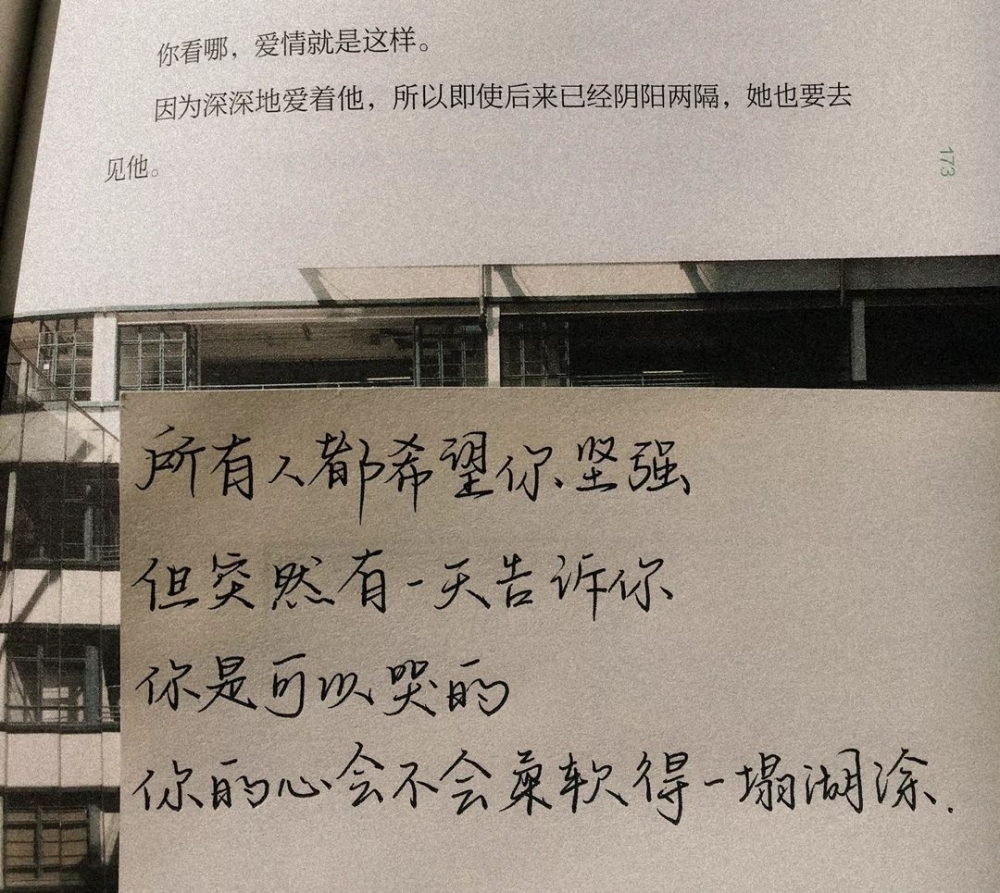 你看哪，爱情就是这样。
因为深深地爱着他，所以即使后来已经阴阳两隔，她也要去
见他。
173
所有人都希望你坚强
但突然有一天告诉你
你是可以哭的
你的心会不会柔软得一塌湖涂.